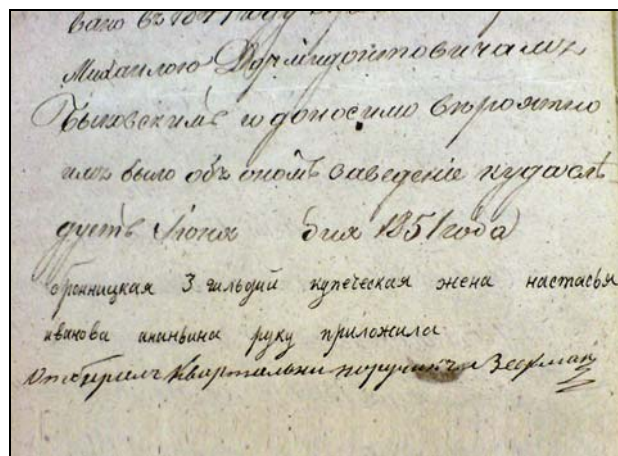 вано въ 1847 году
Михаилою Дормидонтовичамъ
Быковскимъ и доносимо вѣроятно
имъ было объ ономъ заведеніе куда слѣ
дуетъ Іюня 5 дня 1851 года
бронницкая 3 гильдии купеческая жена настасья
иванова ананьина руку приложила
Отобралъ Квартальни поручикъ